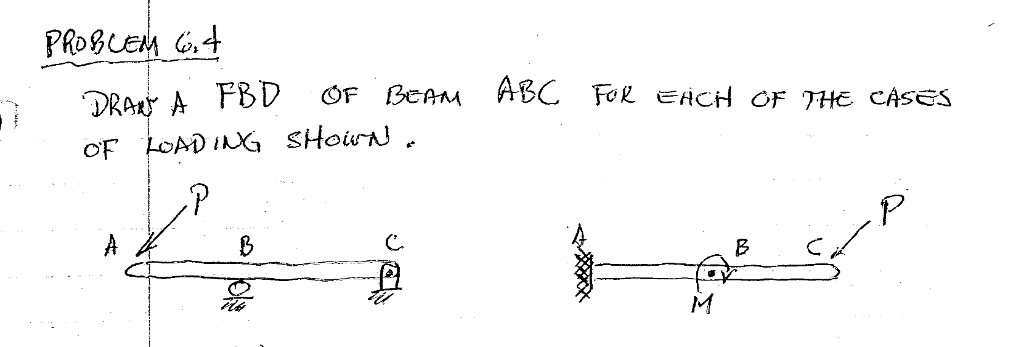 PROBLEM 6.4
DRAW A FBD OF BEAM ABC FOR EACH OF THE CASES
OF LOADING SHOWN.
P
A B C
P
A B C
M